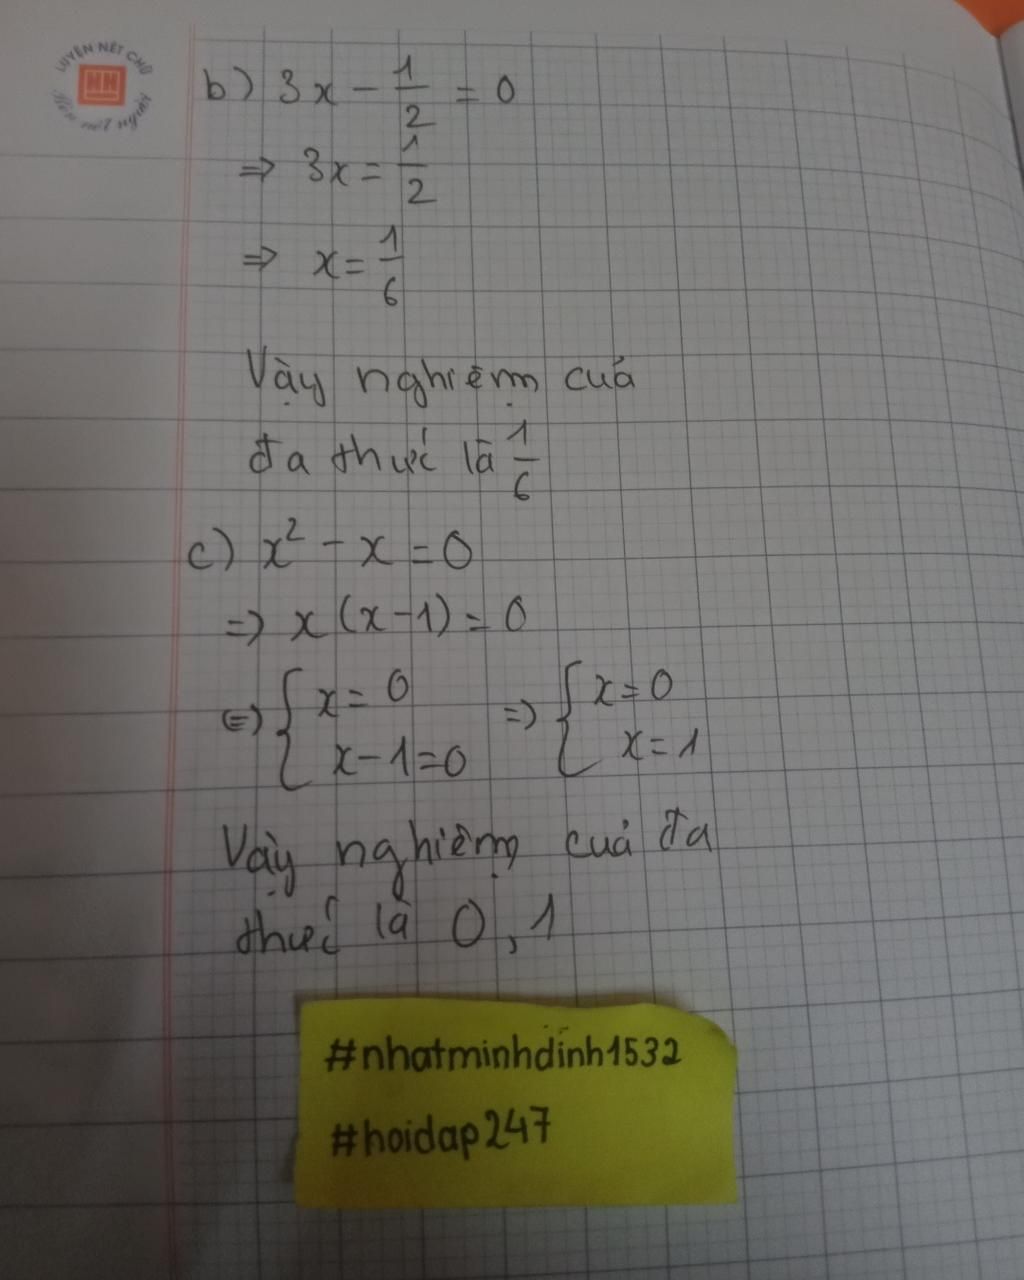 LUYỆN NÉT CHỮ
HN
Rèn nết người
b) 3x - 1/2 = 0
=> 3x = 1/2
=> x = 1/6
Vậy nghiệm của
đa thức là 1/6
c) x² - x = 0
=> x (x - 1) = 0
(=) { x = 0 => { x = 0
x - 1 = 0 x = 1
Vậy nghiệm của đa
thức là 0, 1
#nhatminhdinh1532
#hoidap247